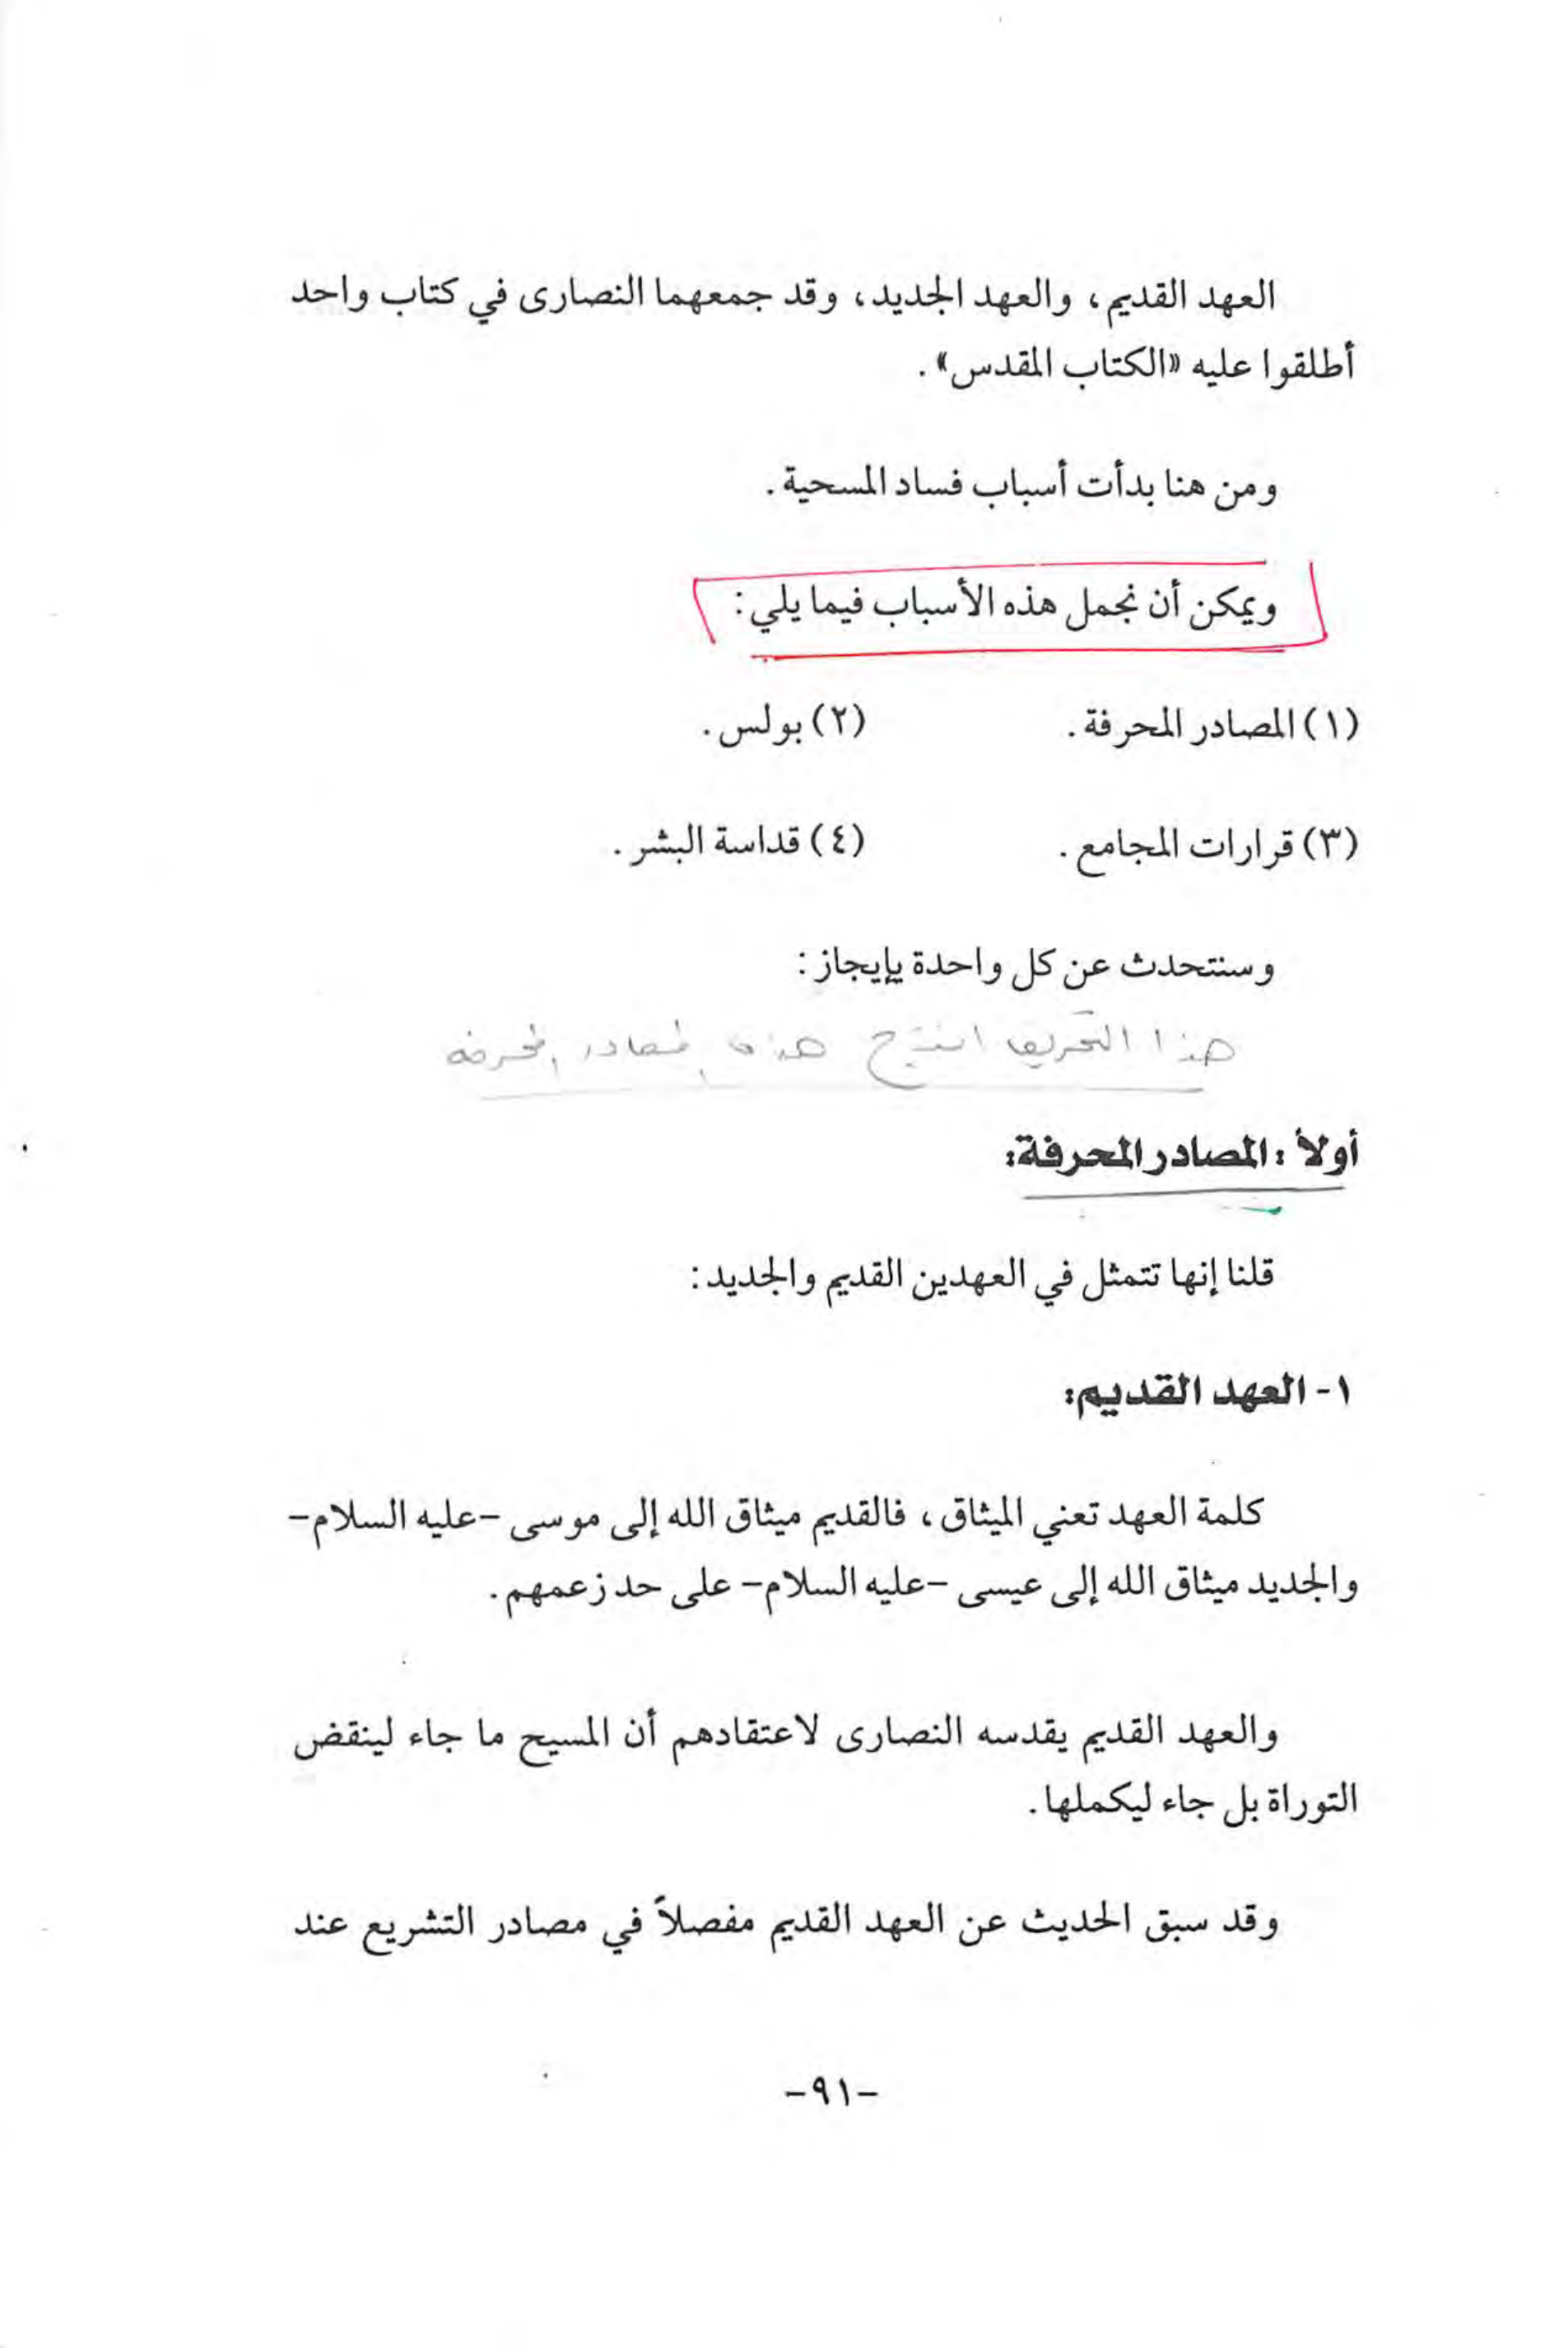 العهد القديم، والعهد الجديد، وقد جمعهما النصارى في كتاب واحد
أطلقوا عليه «الكتاب المقدس».
ومن هنا بدأت أسباب فساد المسحية.
ويمكن أن نجمل هذه الأسباب فيما يلي:
(١) المصادر المحرفة. (٢) بولس.
(٣) قرارات المجامع. (٤) قداسة البشر.
وسنتحدث عن كل واحدة بإيجاز:
هذا التحريف انتج هذه المصادر المحرفة
أولاً: المصادر المحرفة:
قلنا إنها تتمثل في العهدين القديم والجديد:
١- العهد القديم:
كلمة العهد تعني الميثاق، فالقديم ميثاق الله إلى موسى -عليه السلام-
والجديد ميثاق الله إلى عيسى -عليه السلام- على حد زعمهم.
والعهد القديم يقدسه النصارى لاعتقادهم أن المسيح ما جاء لينقض
التوراة بل جاء ليكملها.
وقد سبق الحديث عن العهد القديم مفصلاً في مصادر التشريع عند
-٩١-